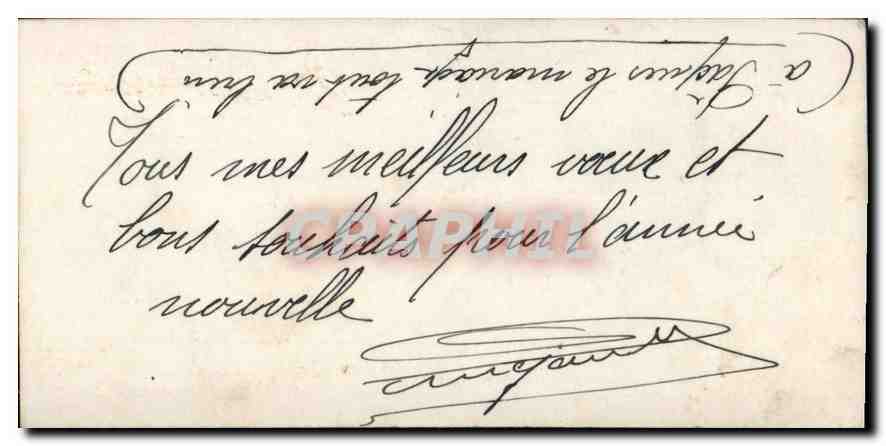 à Jacques le mariage tout va bien
Tous mes meilleurs vœux et
bons souhaits pour l'année
nouvelle
CPAPHIL